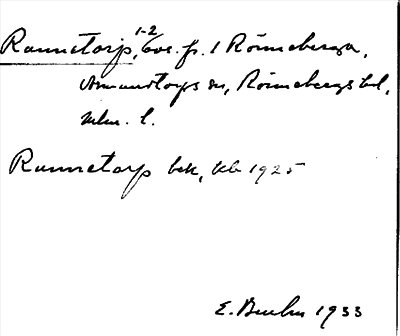 Rannetorp, 1-2 Eve. fr. 1 Rönneberga,
Asmundtorps sn, Rönnebergs hd,
Mlm. l.
Rannetorp bek, Kb 1925
E. Bruhn 1933